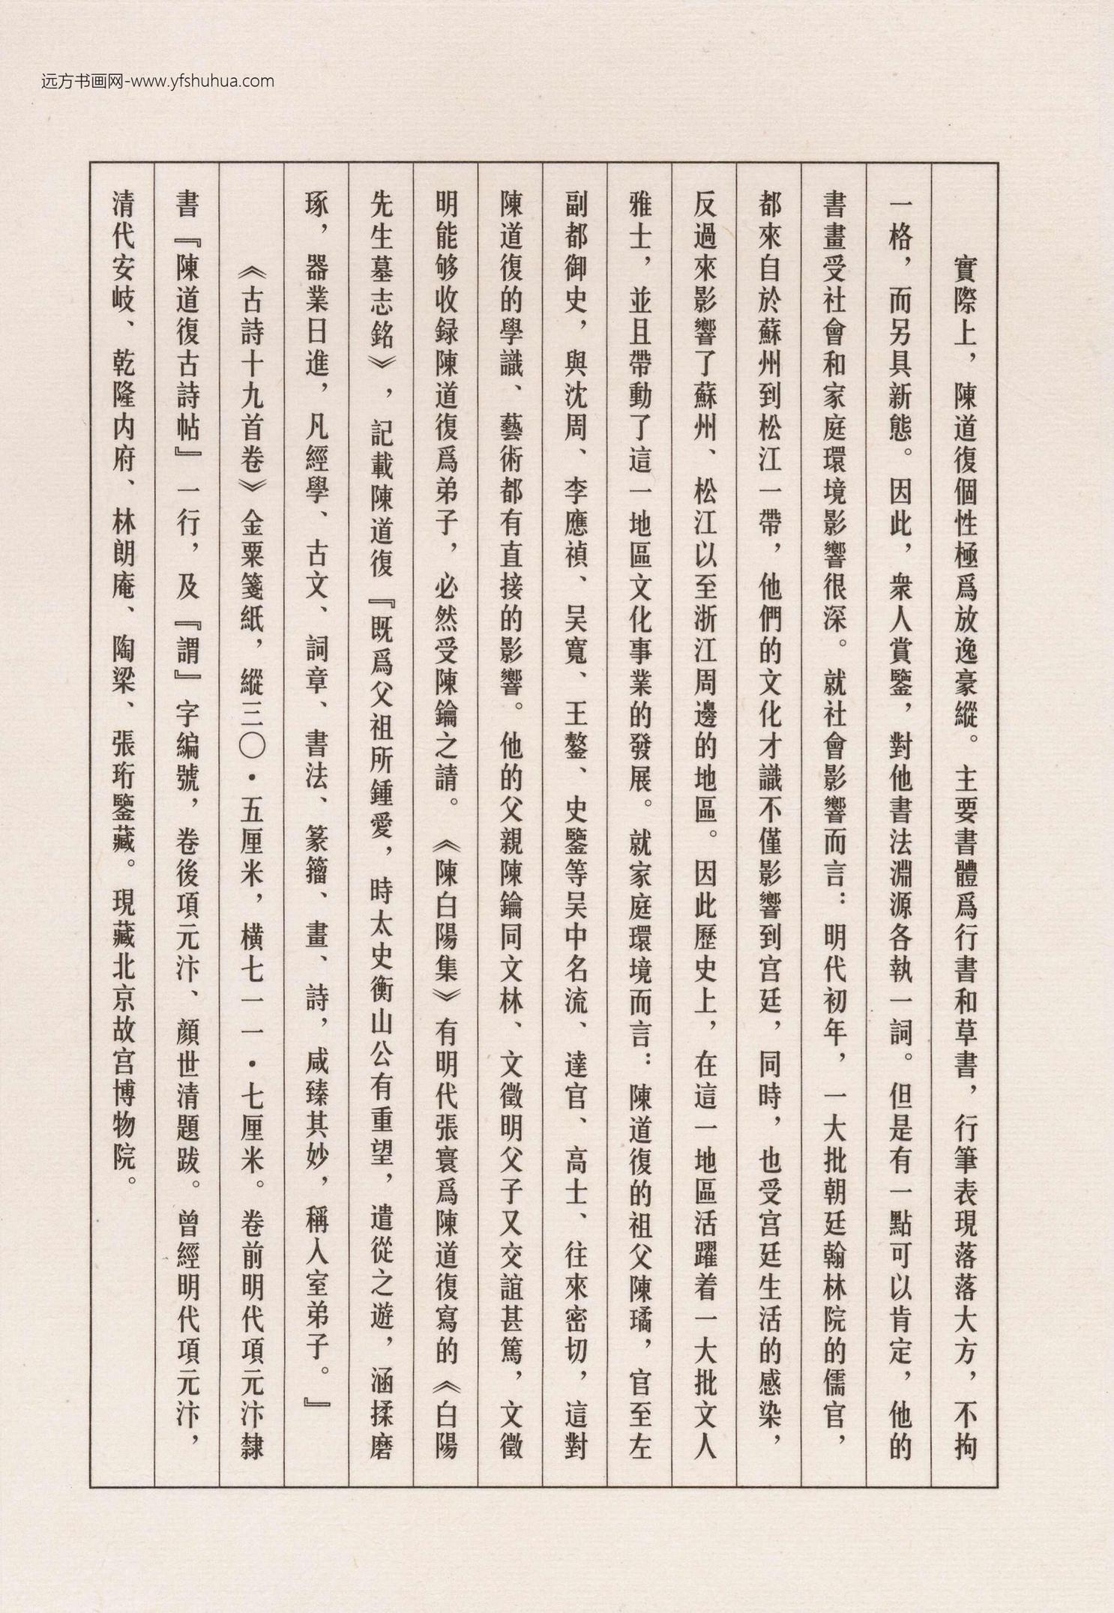 远方书画网-www.yfshuhua.com
實際上，陳道復個性極爲放逸豪縱。主要書體爲行書和草書，行筆表現落落大方，不拘
一格，而另具新態。因此，衆人賞鑒，對他書法淵源各執一詞。但是有一點可以肯定，他的
書畫受社會和家庭環境影響很深。就社會影響而言：明代初年，一大批朝廷翰林院的儒官，
都來自於蘇州到松江一帶，他們的文化才識不僅影響到宫廷，同時，也受宫廷生活的感染，
反過來影響了蘇州、松江以至浙江周邊的地區。因此歷史上，在這一地區活躍着一大批文人
雅士，並且帶動了這一地區文化事業的發展。就家庭環境而言：陳道復的祖父陳璚，官至左
副都御史，與沈周、李應禎、吴寬、王鏊、史鑒等吴中名流、達官、高士、往來密切，這對
陳道復的學識、藝術都有直接的影響。他的父親陳鑰同文林、文徵明父子又交誼甚篤，文徵
明能够收録陳道復爲弟子，必然受陳鑰之請。《陳白陽集》有明代張寰爲陳道復寫的《白陽
先生墓志銘》，記載陳道復『既爲父祖所鍾愛，時太史衡山公有重望，遣從之遊，涵揉磨
琢，器業日進，凡經學、古文、詞章、書法、篆籀、畫、詩，咸臻其妙，稱入室弟子。』
《古詩十九首卷》金粟箋紙，縱三〇·五厘米，横七一一·七厘米。卷前明代項元汴隸
書『陳道復古詩帖』一行，及『謂』字編號，卷後項元汴、顔世清題跋。曾經明代項元汴，
清代安岐、乾隆内府、林朗庵、陶梁、張珩鑒藏。現藏北京故宫博物院。